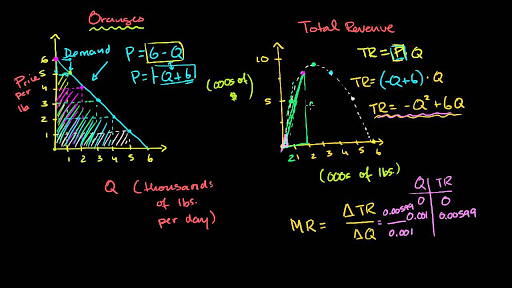 Oranges
Demand
P = 6 - Q
P = -Q + 6
Price
per
lb
6
5
4
3
2
1
1 2 3 4 5 6
Q (thousands
of lbs.
per day)
Total Revenue
(000s of
$)
10
5
2 1 2 3 4 5 6
(000s of lbs.)
TR = P · Q
TR = (-Q+6) · Q
TR = -Q² + 6Q
MR = ΔTR
ΔQ
= 0.00599
0.001
Q TR
0 0
0.001 0.00599